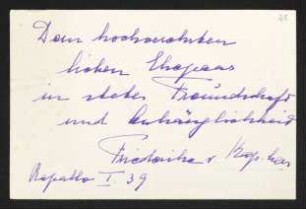 Dem hochverehrten
lieben Ehepaar
in steter Freundschaft
und Anhänglichkeit
Friederike v
Rapallo I. 39